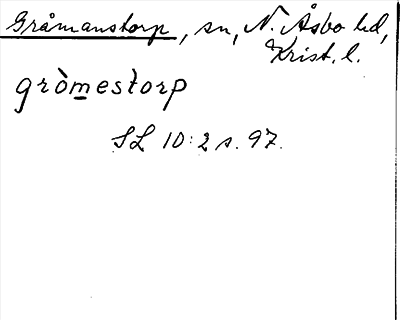 Gråmanstorp, sn, N. Åsbo hd,
Krist. l.
gròmestorp
SL 10:2 s. 97.